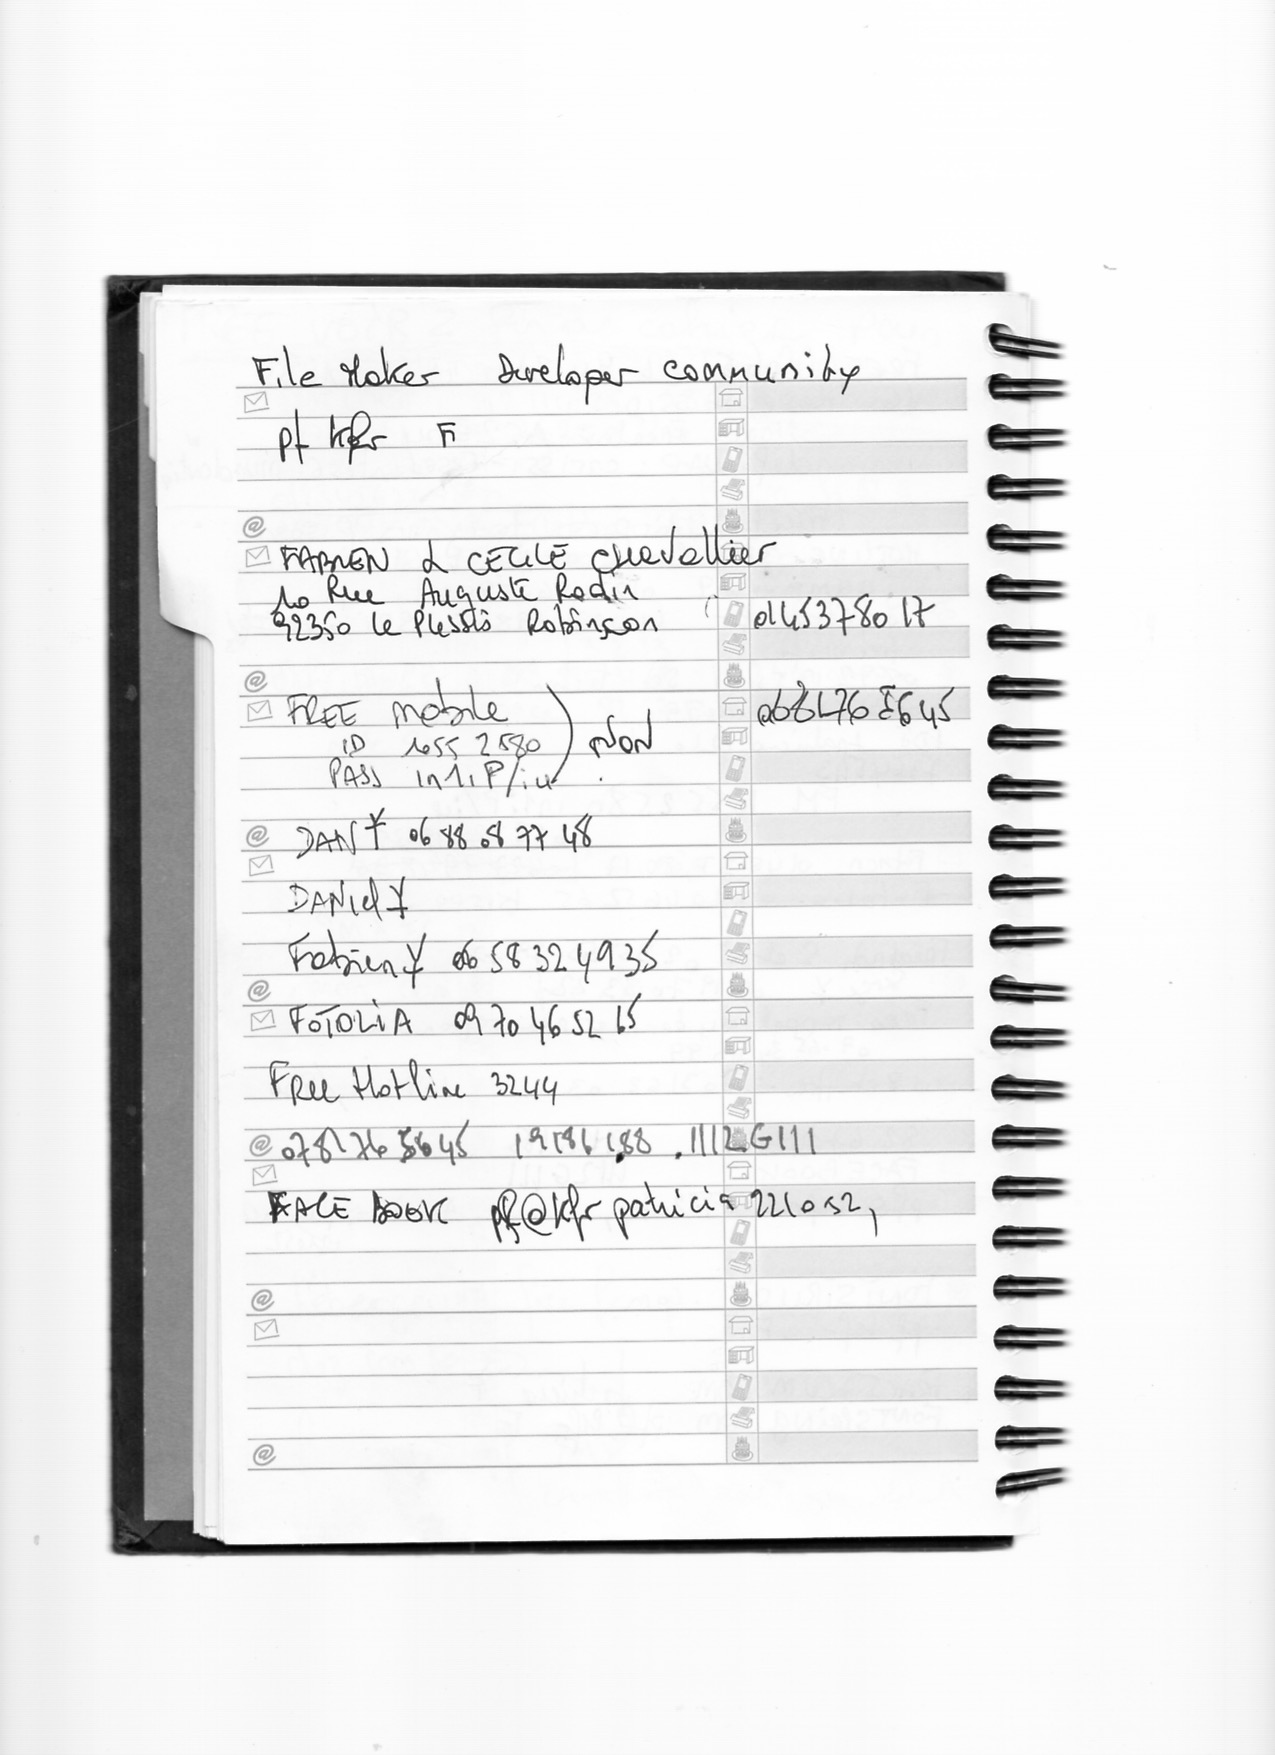 File Maker Developer community
pf kfr F
FABIEN & CECILE Chevallier
10 Rue Auguste Rodin
92350 Le Plessis Robinson 0145378017
FREE mobile
ID 1655 2580 NON
PASS
DANY 06 88 08 77 48
DANIEL Y
Fabien Y 06 58 32 49 35
FOTOLIA 09 70 46 52 65
Free Hotline 3244
FACE BOOK pf@kfr patricia 221052,